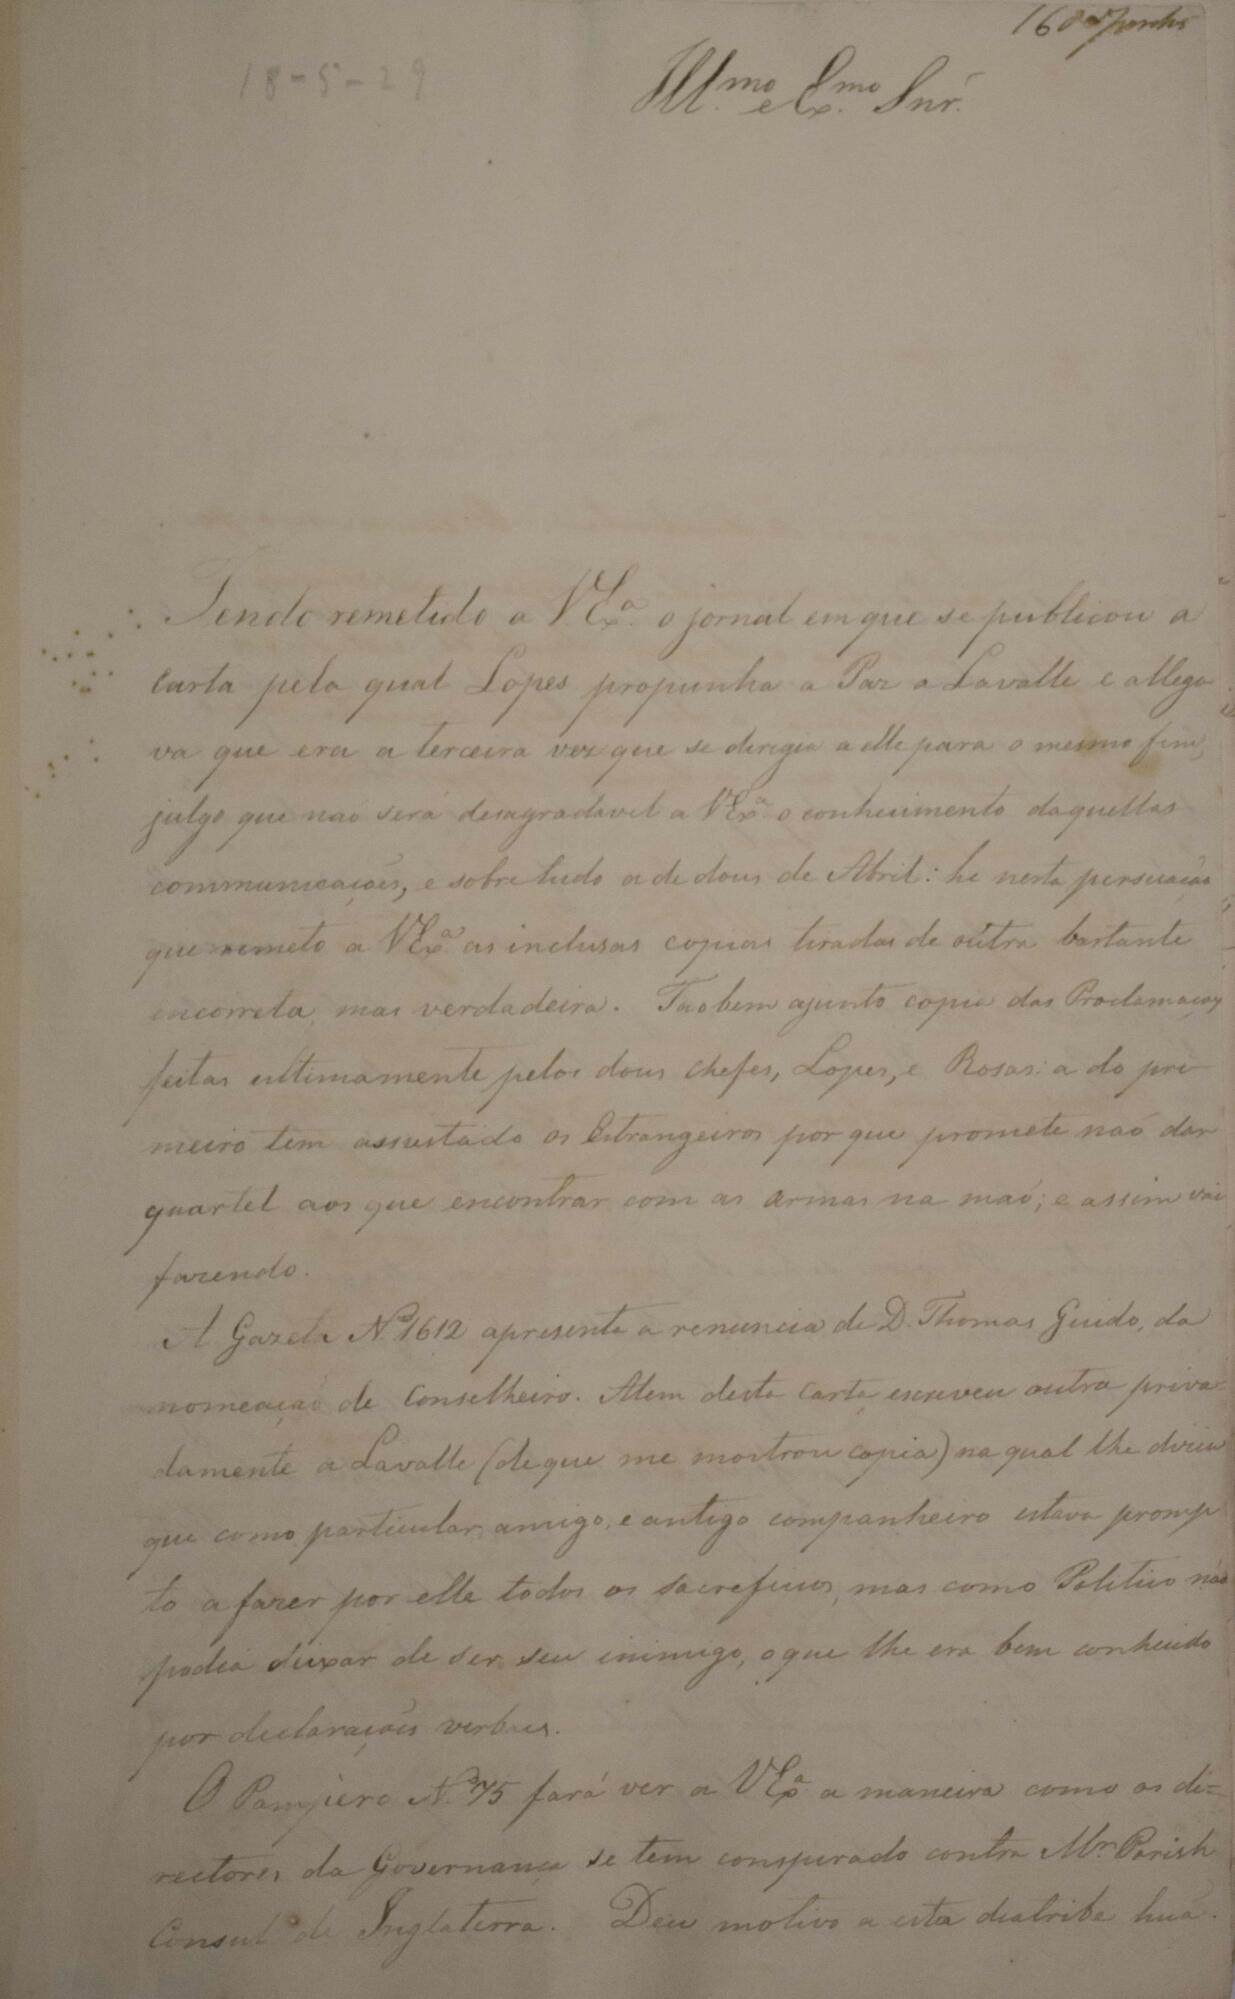 16 de Junho
18-5-29
Ill.mo e Ex.mo Snr.
Tendo remetido a V.Ex.a o jornal em que se publicou a
carta pela qual Lopes propunha a Paz a Lavalle e allega
va que era a terceira vez que se dirigia a elle para o mesmo fim,
julgo que naõ será desagradavel a VEx.a o conhecimento daquellas
communicações, e sobre tudo a de dous de Abril: he nesta persuaçaõ
que remeto a VEx.a as inclusas copias tiradas de oútra bastante
encorreta, mas verdadeira. Taobem ajunto copia das Proclamaçoẽs
feitas ultimamente pelos dous chefes, Lopes, e Rosas: a do pri-
meiro tem assustado os Estrangeiros por que promete naõ dar
quartel aos que encontrar com as armas na maõ; e assim vai
fazendo.
A Gazeta N.o 1612 apresenta a renuncia de D. Thomas Guido, da
nomeaçaõ de Conselheiro. Alem desta carta escreveu outra priva-
damente a Lavalle (de que me mostrou copia) na qual lhe dizia
que como particular, amigo, e antigo companheiro estava promp
to a fazer por elle todos os sacreficios, mas como Politico naõ
podia deixar de ser seu inimigo, o que lhe era bem conhecido
por declarações verbaes.
O Pampero N.o 75 fará ver a VEx.a a maneira como os di=
rectores da Governança se tem conspirado contra Mr. Parish
Consul de Inglaterra. Deu motivo a esta diatribe huã